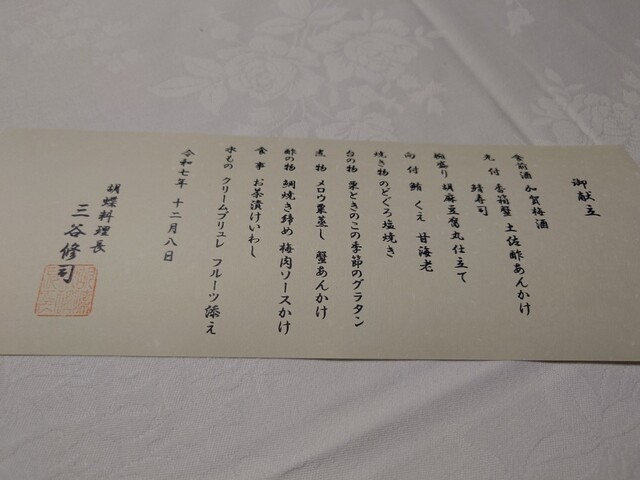 御献立
食前酒 加賀梅酒
先付 香箱蟹 土佐酢あんかけ
鯖寿司
椀盛り 胡麻豆腐丸仕立て
向付 鮪 くえ 甘海老
焼き物 のどぐろ塩焼き
台の物 栗ときのこの季節のグラタン
煮物 メロウ粟蒸し 蟹あんかけ
酢の物 鯛焼き締め 梅肉ソースかけ
食事 お茶漬けいわし
水もの クリームブリュレ フルーツ添え
令和七年 十二月八日
胡蝶料理長
三谷修司